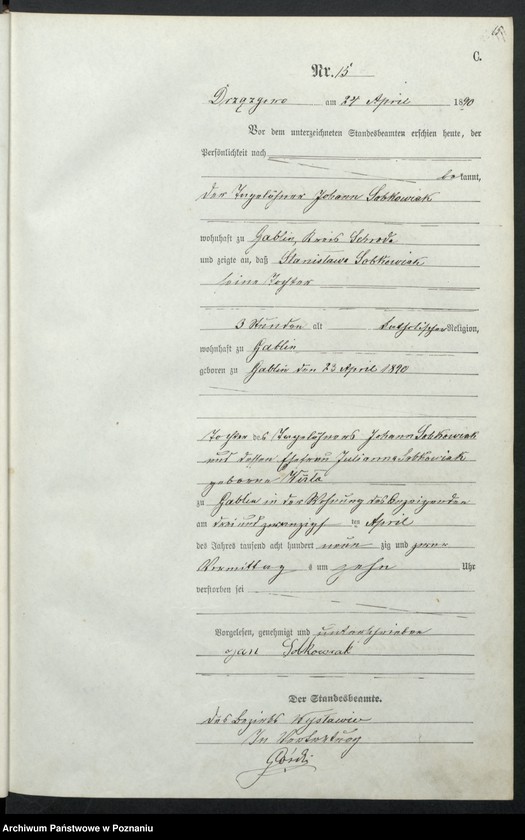 15
C.
Nr. 15
am 24 April 1890
Vor dem unterzeichneten Standesbeamten erschien heute, der
Persönlichkeit nach
be kannt,
der Tagelöhner Johann Sobkowiak
wohnhaft zu Gablin, Kreis Schroda
und zeigte an, daß Stanislawa Sobkowiak
seine Tochter
3 Stunden alt katholischer Religion,
wohnhaft zu Gablin
geboren zu Gablin den 23 April 1890
Tochter des Tagelöhners Johann Sobkowiak
und dessen Ehefrau Julianna Sobkowiak
geborene
zu Gablin in der Wohnung des Anzeigenden
am drei und zwanzigst ten April
des Jahres tausend acht hundert neun zig und
Vormittag s um zehn Uhr
verstorben sei
Vorgelesen, genehmigt und unterschrieben
Jan Sobkowiak
Der Standesbeamte.
des Bezirks
In Vertretung
Górski
Archiwum Państwowe w Poznaniu